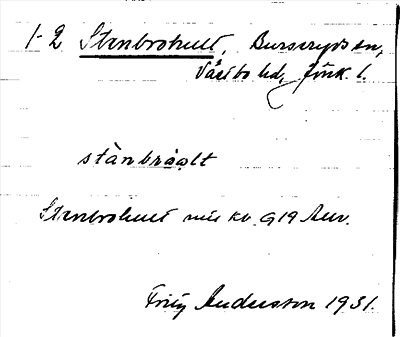 1-2 Stenbrohult, Burseryds sn,
Västbo hd, Jönk. l.
stànbråalt
Stenbrohult mil kv. G19 Anv.
Fritz Andersson 1931.